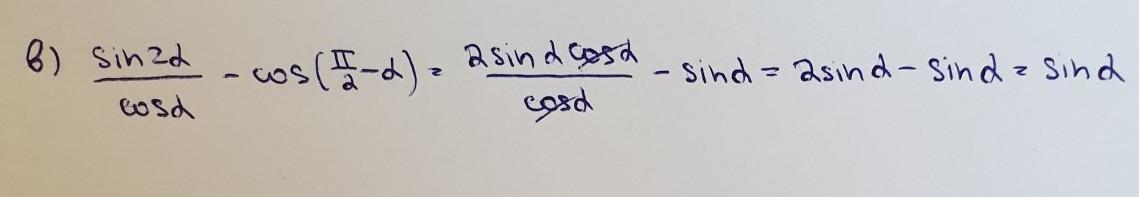 в) sin2α/cosα - cos(π/2-α) = 2sinα cosα/cosα - sinα = 2sinα - sinα = sinα